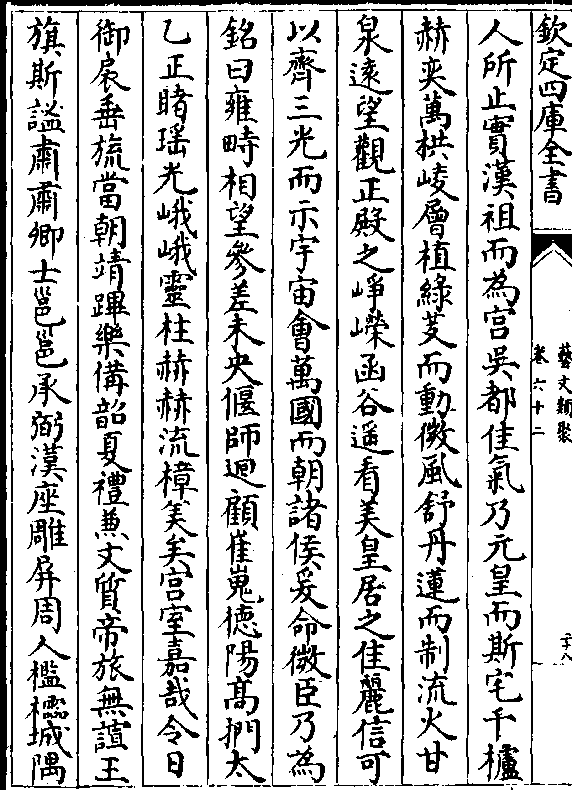 欽定四庫全書
藝文類聚
卷六十二
二十八
人所止實漢祖而為宫吳都佳氣乃元皇而斯宅千櫨
赫奕萬拱崚層植綠芰而動微風舒丹蓮而制流火甘
泉遠望觀正殿之崢嶸函谷遥看美皇居之佳麗信可
以齊三光而示宇宙會萬國而朝諸侯爰命微臣乃為
銘曰雍畤相望參差未央偃師迴顧崔嵬徳陽髙捫太
乙正睹瑶光峨峨靈柱赫赫流樟美矣宫室嘉哉令日
御扆垂旒當朝靖蹕樂備韶夏禮兼文質帝旅無諠王
旗斯謐肅肅卿士邕邕承弼漢座雕屏周人檻櫺城隅